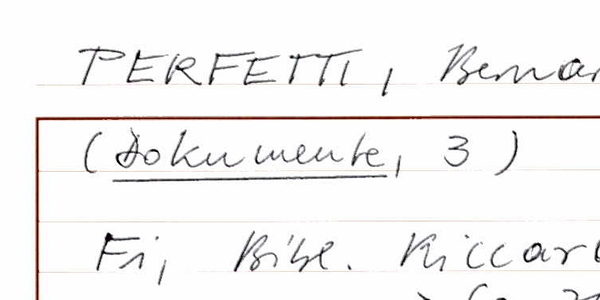 PERFETTI, Bernar
(Dokumente, 3)
Fi, Bibl. Riccar